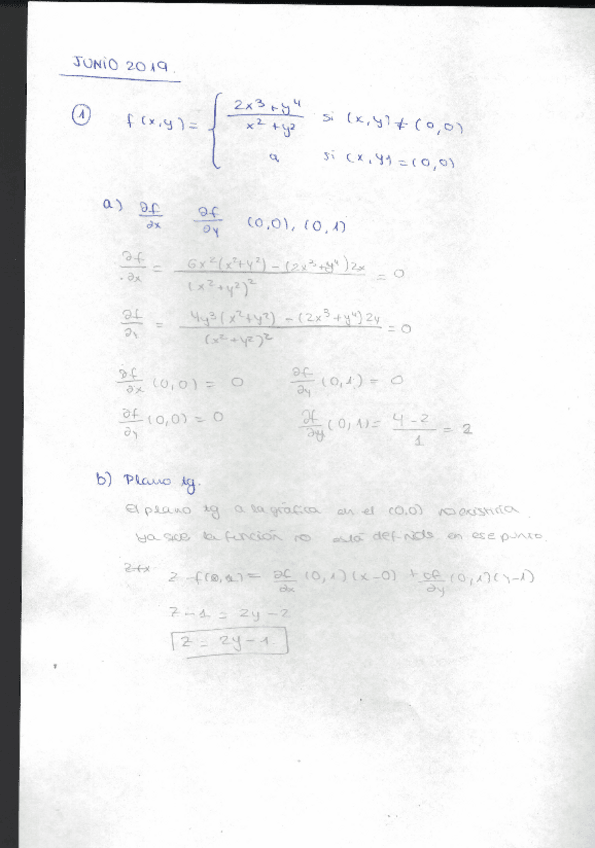 JUNIO 2019.
① f(x,y) = { 2x³+y⁴ / x²+y² si (x,y) ≠ (0,0)
a si (x,y) = (0,0)
a) ∂f/∂x ∂f/∂y (0,0), (0,1)
∂f/∂x = 6x²(x²+y²) - (2x³+y⁴)2x / (x²+y²)² = 0
∂f/∂y = 4y³(x²+y²) - (2x³+y⁴)2y / (x²+y²)² = 0
∂f/∂x (0,0) = 0 ∂f/∂y (0,1) = 0
∂f/∂y (0,0) = 0 ∂f/∂y (0,1) = 4-2 / 1 = 2
b) Plano tg.
El plano tg a la gráfica en el (0,0) no existiría
ya que la función no está definida en ese punto.
z - f(0,1) = ∂f/∂x (0,1)(x-0) + ∂f/∂y (0,1)(y-1)
z-1 = 2y-2
z = 2y-1